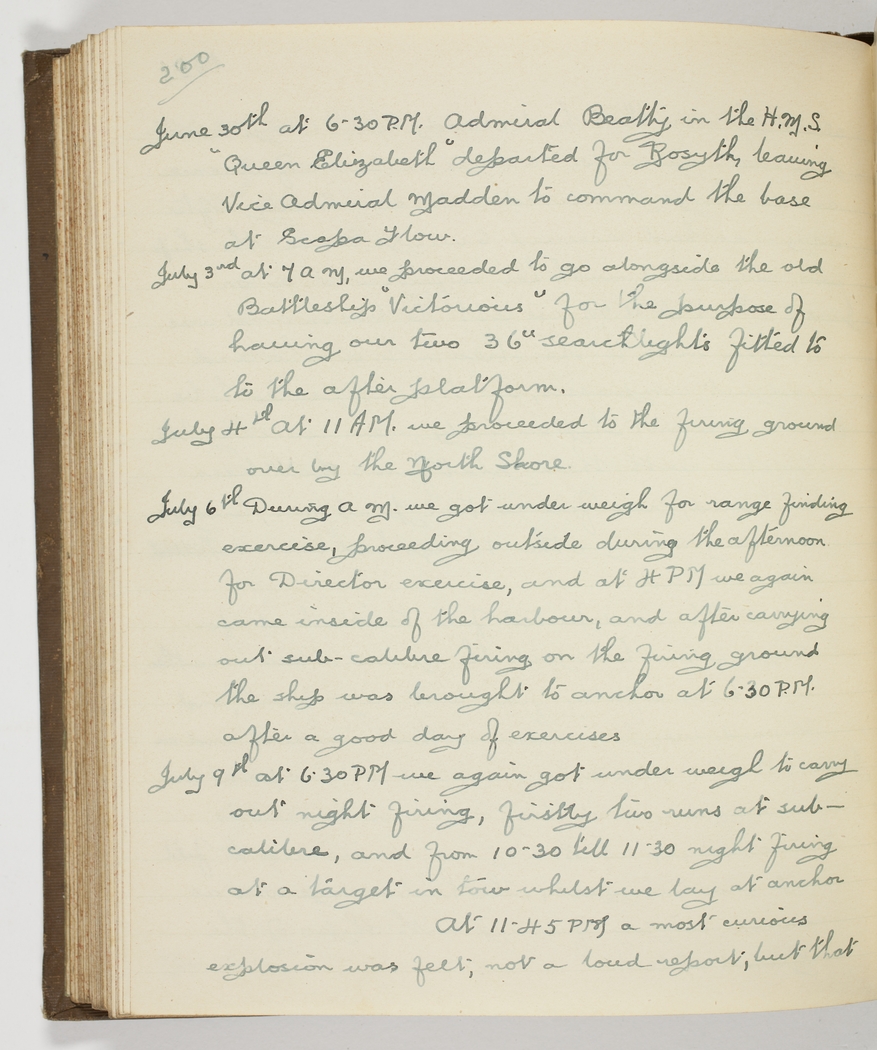 200
June 30th at 6-30 P.M. Admiral Beatty in the H.M.S.
"Queen Elizabeth" departed for Rosyth, leaving
Vice Admiral Madden to command the base
at Scapa Flow.
July 3rd at 7 A M, we proceeded to go alongside the old
Battleship "Victorious" for the purpose of
having our two 36" searchlights fitted to
to the after platform.
July 4th At 11 AM. we proceeded to the firing ground
over by the North Shore.
July 6th During A M. we got under weigh for range finding
exercise, proceeding outside during the afternoon
for Director exercise, and at 4 PM we again
came inside of the harbour, and after carrying
out sub-calibre firing on the firing ground
the ship was brought to anchor at 6-30 P.M.
after a good day of exercises
July 9th at 6-30 PM we again got under weigh to carry
out night firing, firstly two runs at sub-
calibre, and from 10-30 till 11-30 night firing
at a target in tow whilst we lay at anchor
At 11-45 PM a most curious
explosion was felt, not a loud report, but that